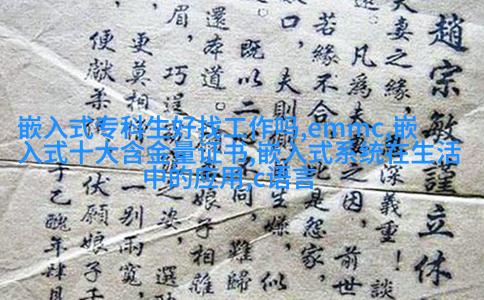 嵌入式专科生好找工作吗,emmc,嵌
入式十大含金量证书,嵌入式系统在生活
中的应用,c语言
趙宗敏謹立休
夫妻之緣,深義重!談
凡為夫妻之因,前世
若緣不合是怨家,
口,夫則相生嫌,似
既以二不同,難歸
還本道。娘子相離
眉,巧逞之姿,選
更莫相一別兩寬,
便獻柔伏願娘子千
于乙醜年肆月